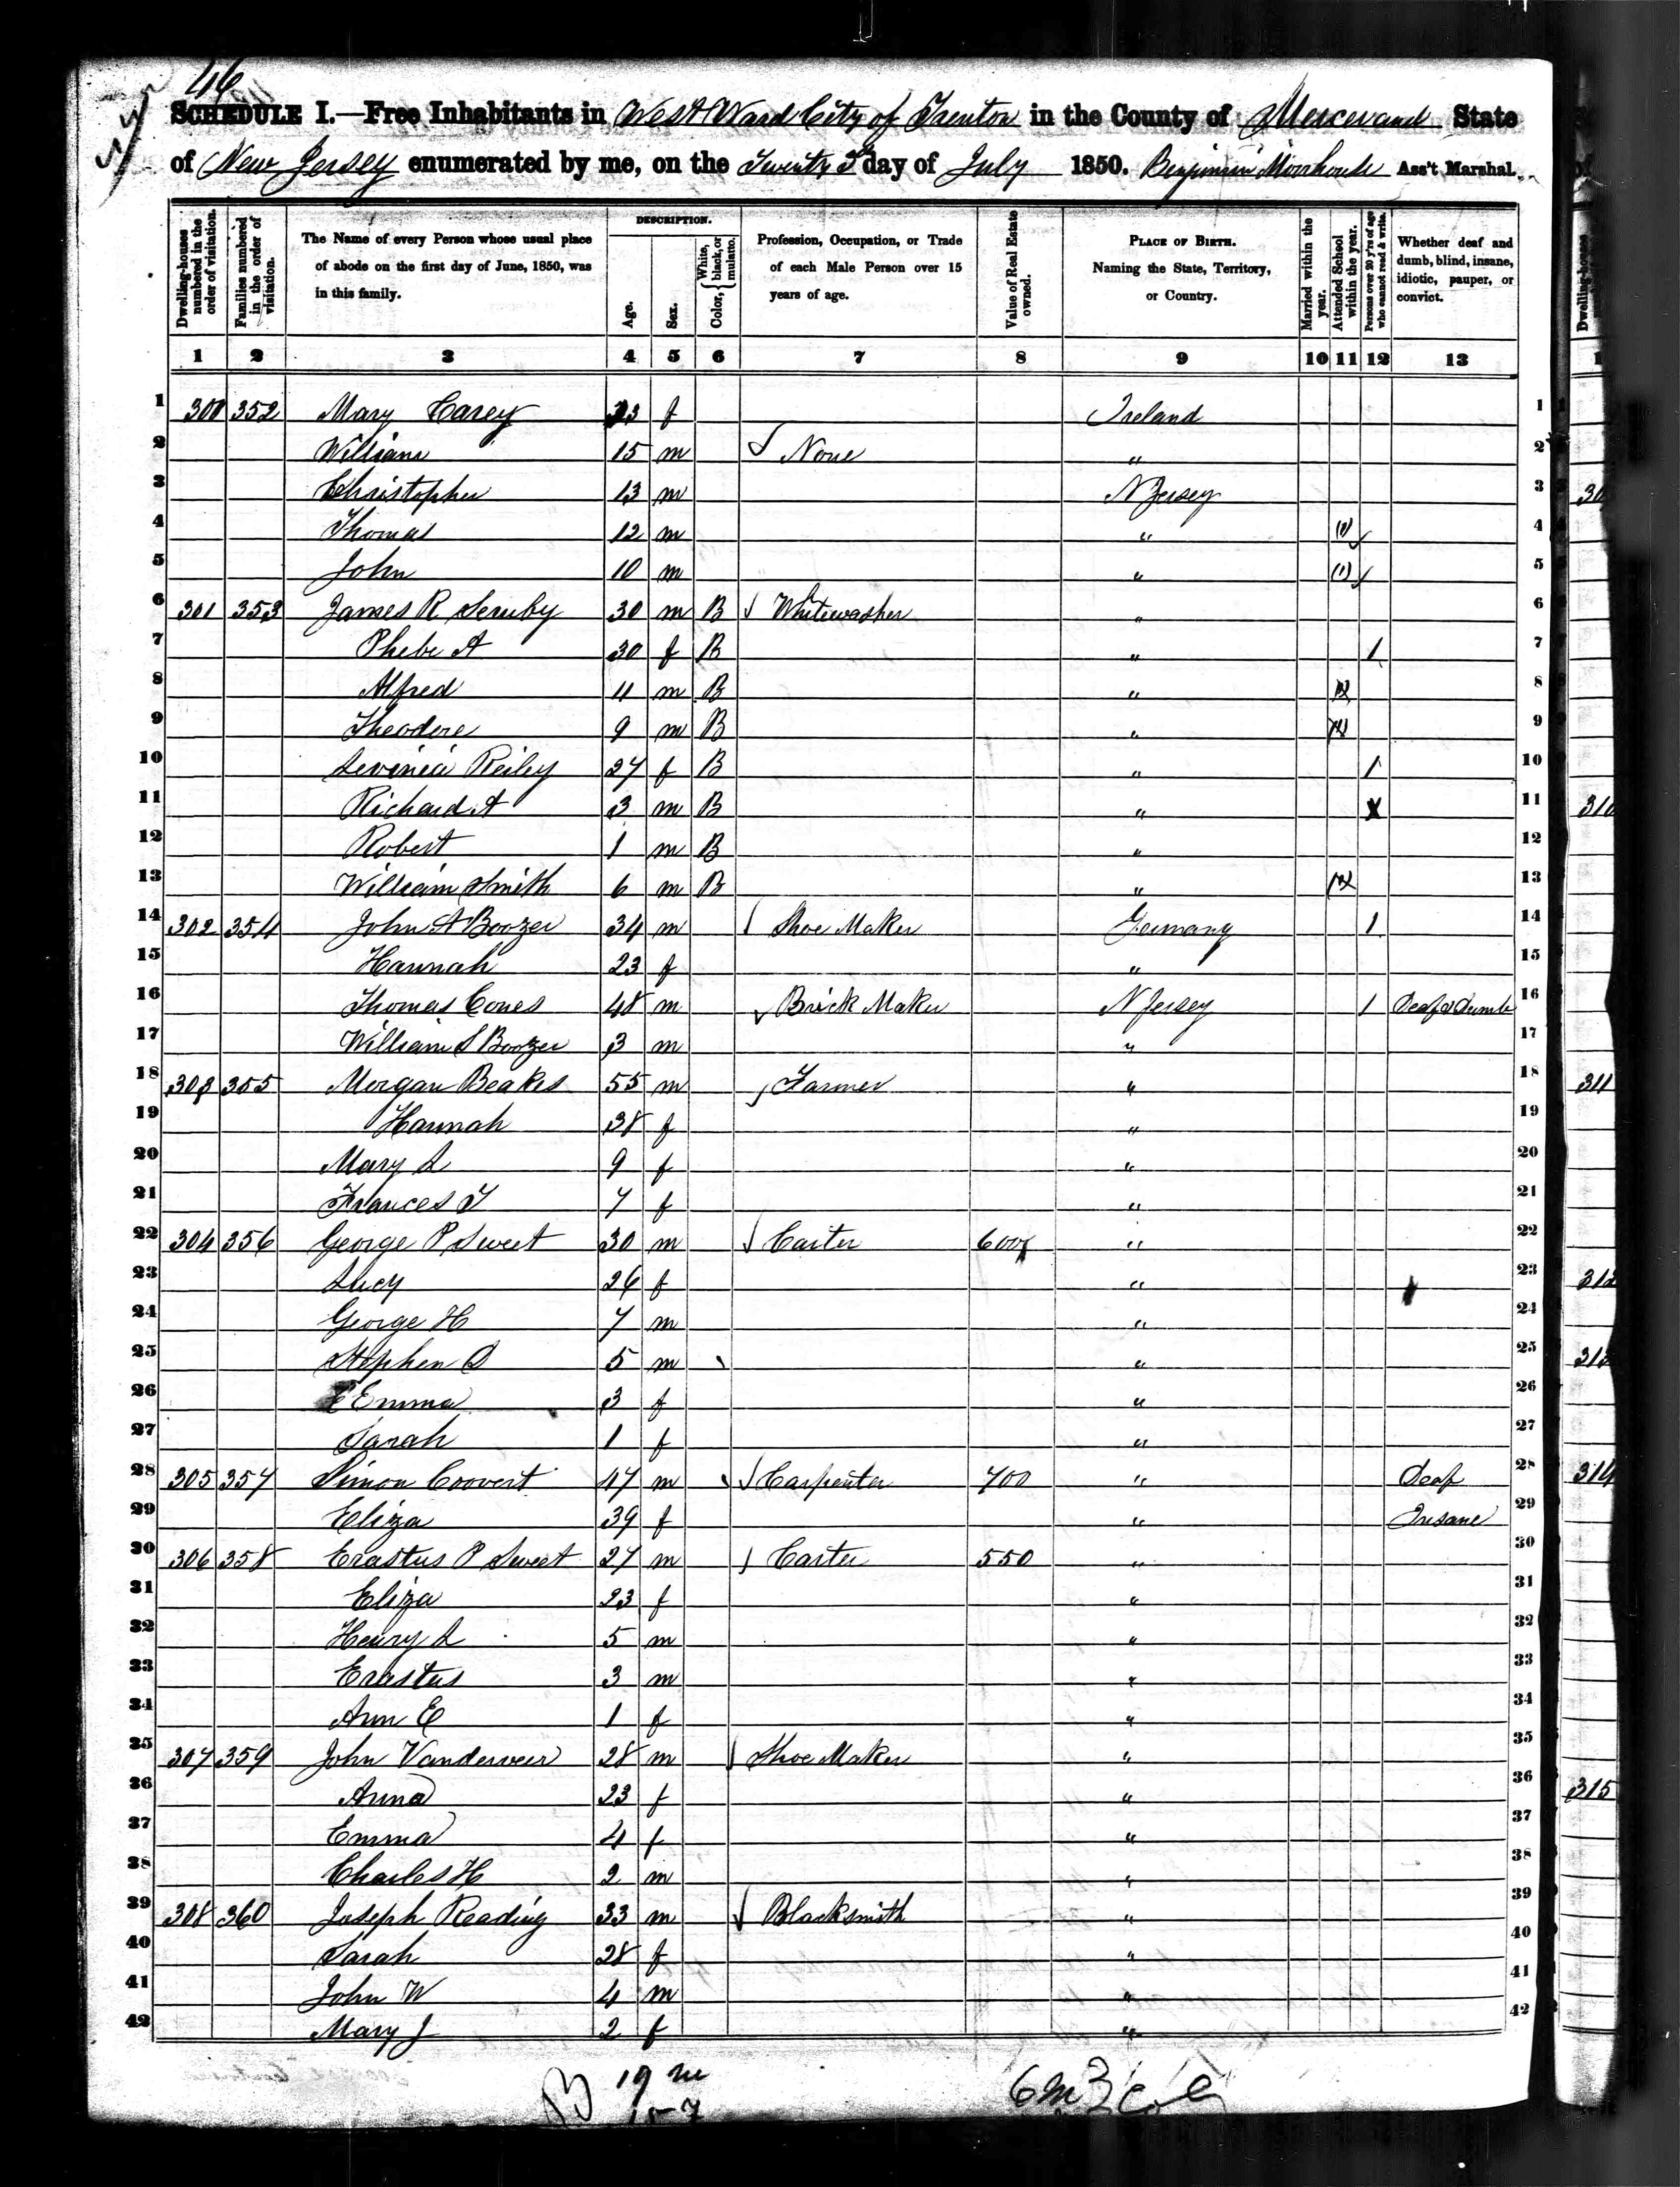 46
SCHEDULE I.—Free Inhabitants in West Ward City of Trenton in the County of Mercer and State
of New Jersey enumerated by me, on the Twenty 3d day of July 1850. Benjamin Moorhouse Ass't Marshal.
Dwelling-houses numbered in the order of visitation.
Families numbered in the order of visitation.
The Name of every Person whose usual place of abode on the first day of June, 1850, was in this family.
DESCRIPTION.
Age.
Sex.
Color, { White, black, or mulatto.
Profession, Occupation, or Trade of each Male Person over 15 years of age.
Value of Real Estate owned.
PLACE OF BIRTH. Naming the State, Territory, or Country.
Married within the year.
Attended School within the year.
Persons over 20 y'rs of age who cannot read & write.
Whether deaf and dumb, blind, insane, idiotic, pauper, or convict.
1 2 3 4 5 6 7 8 9 10 11 12 13
1 300 352 Mary Carey 33 f Ireland 1
2 William 15 m None " 2
3 Christopher 13 m N Jersey 3
4 Thomas 12 m " (1) 4
5 John 10 m " (1) 5
6 301 353 James R 30 m B Whitewasher " 6
7 Phebe A 30 f B " 1 7
8 Alfred 11 m B " 8
9 Theodore 9 m B " 9
10 Levinia Reiley 27 f B " 1 10
11 Richard A 3 m B " 11
12 Robert 1 m B " 12
13 William Smith 6 m B " 13
14 302 354 John A Boozer 34 m Shoe Maker Germany 1 14
15 Hannah 23 f " 15
16 Thomas Cones 48 m Brick Maker N Jersey 1 Deaf & Dumb 16
17 William S Boozer 3 m " 17
18 303 355 Morgan Beakes 55 m Farmer " 18
19 Hannah 38 f " 19
20 Mary L 9 f " 20
21 Frances T 7 f " 21
22 304 356 George P Sweet 30 m Carter 600 " 22
23 Lucy 26 f " 23
24 George H 7 m " 24
25 Stephen D 5 m " 25
26 Emma 3 f " 26
27 Sarah 1 f " 27
28 305 357 Simon Coovert 47 m Carpenter 700 " Deaf 28
29 Eliza 39 f " Insane 29
30 306 358 Erastus P Sweet 27 m Carter 550 " 30
31 Eliza 23 f " 31
32 Henry L 5 m " 32
33 Erastus 3 m " 33
34 Ann E 1 f " 34
35 307 359 John Vanderveer 28 m Shoe Maker " 35
36 Anna 23 f " 36
37 Emma 4 f " 37
38 Charles H 2 m " 38
39 308 360 Joseph Reading 33 m Blacksmith " 39
40 Sarah 28 f " 40
41 John W 4 m " 41
42 Mary J 2 f " 42
B 19 m
15 f
Dwelling-house
310
311
312
313
314
315